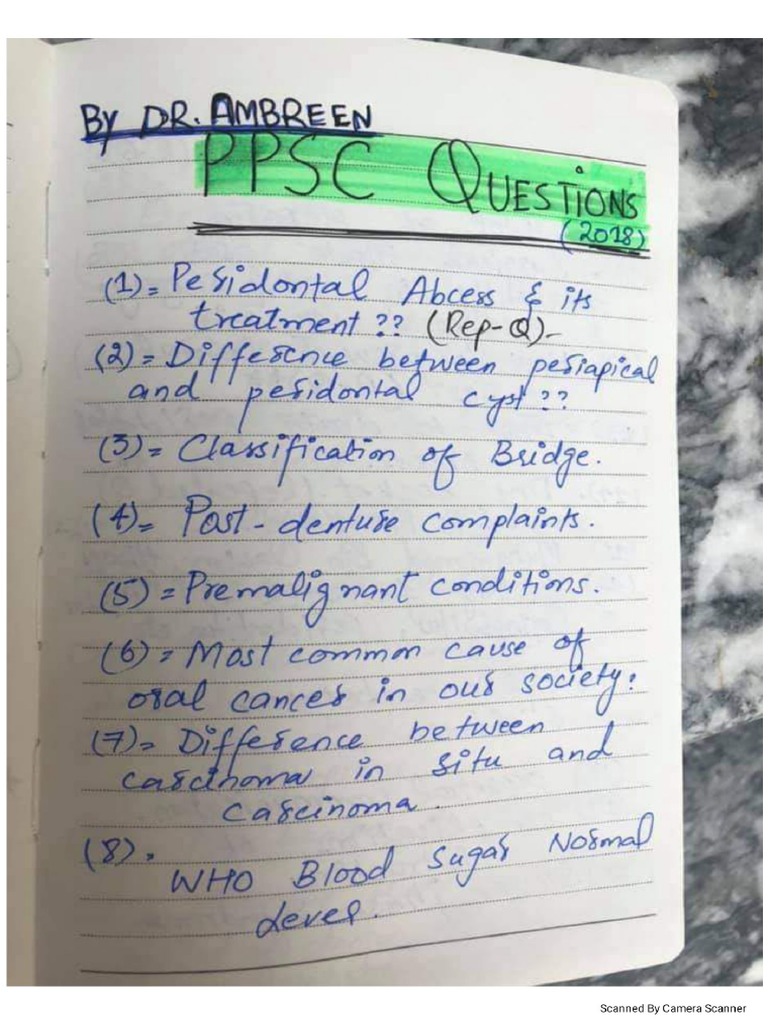 By DR. AMBREEN
PPSC QUESTIONS
(2018)
(1)= Peridontal Abcess & its
treatment ?? (Rep-Q)-
(2)= Difference between periapical
and peridontal cyst ??
(3)= Classification of Bridge.
(4)= Post-denture complaints.
(5)= Premalignant conditions.
(6)= Most common cause of
oral cancer in our society?
(7)= Difference between
carcinoma in situ and
carcinoma.
(8)=
WHO Blood Sugar Normal
Level.
Scanned By Camera Scanner